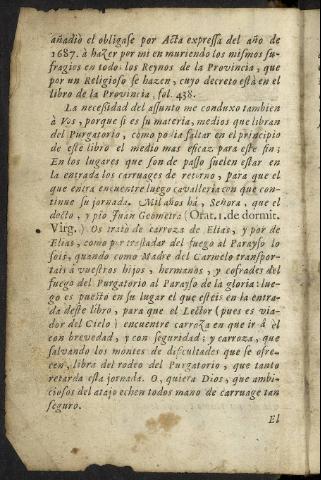 añadió el obligase por Acta expressa del año de
1687. à hazer por mi en muriendo los mismos su-
fragios en todos los Reynos de la Provincia, que
por un Religioso se hazen, cuyo decreto está en el
libro de la Provincia, fol. 438.
La necesidad del assunto me conduxo tambien
à Vos, porque si es su materia, medios que libran
del Purgatorio, como podia faltar en el principio
de este libro el medio mas eficaz para este fin;
En los lugares que son de passo suelen estar en
la entrada los carruages de retorno, para que el
que entra encuentre luego cavalleria con que con-
tinue su jornada. Mil años há, Señora, que el
docto, y pio Juan Geometra (Orat. 1. de dormit.
Virg.) Os trató de carroza de Elias, y por de
Elias, como por trasladar del fuego al Parayso lo
sois, quando como Madre del Carmelo transpor-
tais à vuestros hijos, hermanos, y cofrades del
fuego del Purgatorio al Parayso de la gloria: lue-
go es puesto en su lugar el que esteis en la entra-
da deste libro, para que el Lector (pues es via-
dor del Cielo) encuentre carroza en que ir à él
con brevedad, y con seguridad; y carroza, que
salvando los montes de dificultades que se ofre-
cen, libra del rodeo del Purgatorio, que tanto
retarda esta jornada. O, quiera Dios, que ambi-
ciosos del atajo echen todos mano de carruage tan
seguro.
El